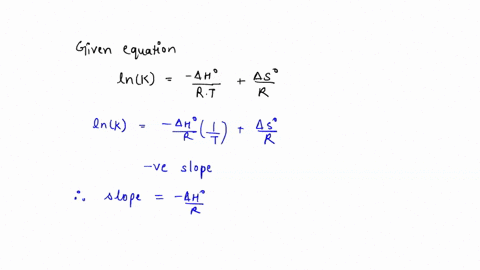 Given equation
ln(K) = -ΔH°/R.T + ΔS°/R
ln(K) = -ΔH°/R (1/T) + ΔS°/R
-ve slope
∴ slope = -ΔH°/R